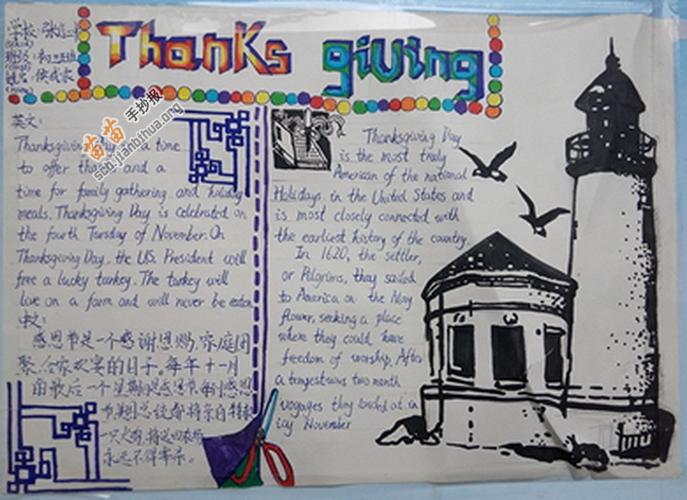 Thanks giving
学校:
班级: 初
姓名:
苗苗手抄报
scb.jianbihua.org
英文:
Thanksgiving Day is a time
to offer thanks and a
time for family gathering and holiday
meals. Thanksgiving Day is celebrated on
the fourth Tuesday of November. On
Thanksgiving Day, the U.S. President will
free a lucky turkey. The turkey will
live on a farm and will never be eaten
中文:
感恩节是一个感谢恩赐,家庭团
聚,合家欢宴的日子。每年十一月
的最后一个星期四是感恩节。每到感恩
节,美国总统都将亲自特赦
一只火鸡,将送回农场
永远不得宰杀。
Thanksgiving Day
is the most truly
American of the national
Holidays in the United States and
is most closely connected with
the earliest history of the country.
In 1620, the settler,
or Pilgrims, they sailed
to America on the May
flower, seeking a place
where they could have
freedom of worship. After
a tempestuous two month
voyages they landed at in
icy November